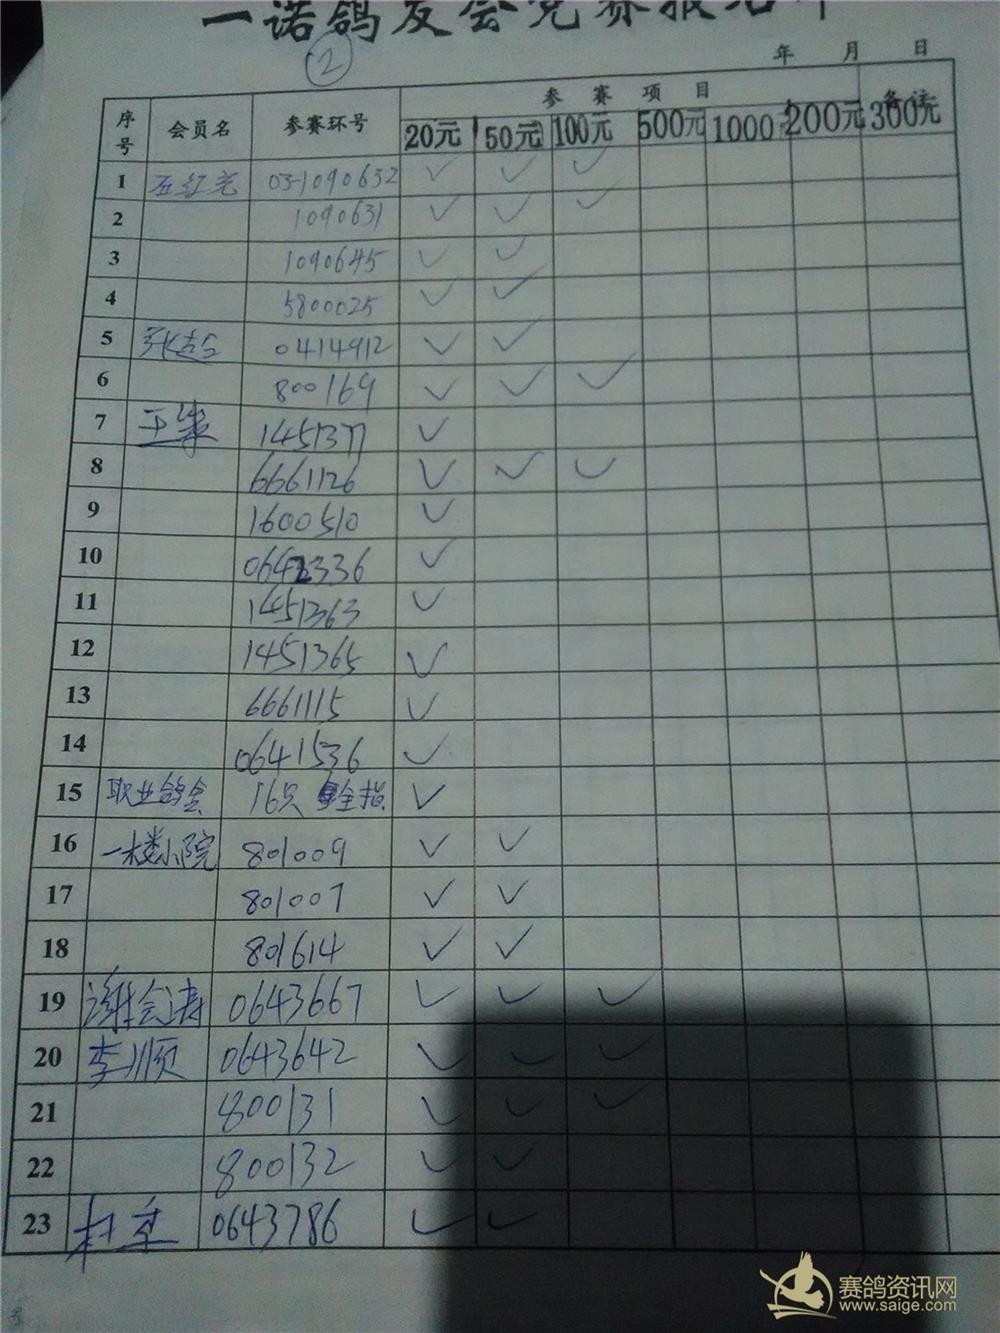 一诺鸽友会竞赛报名单
2
年 月 日
序号 会员名 参赛环号 参赛项目 备注
20元 50元 100元 500元 1000元 200元 300元
1 03-1090632 ✓ ✓ ✓
2 1090631 ✓ ✓ ✓
3 1090645 ✓ ✓
4 5800025 ✓ ✓
5 0414912 ✓ ✓
6 800169 ✓ ✓ ✓
7 1451377 ✓
8 6661126 ✓ ✓ ✓
9 1600510 ✓
10 0642336 ✓
11 1451363 ✓
12 1451365 ✓
13 6661115 ✓
14 0641536 ✓
15 职业鸽会 16只 全指 ✓
16 一楼小院 801009 ✓ ✓
17 801007 ✓ ✓
18 801614 ✓ ✓
19 谢会涛 0643667 ✓ ✓ ✓
20 李顺 0643642 ✓ ✓ ✓
21 800131 ✓ ✓ ✓
22 800132 ✓ ✓
23 0643786 ✓ ✓
赛鸽资讯网
www.saige.com